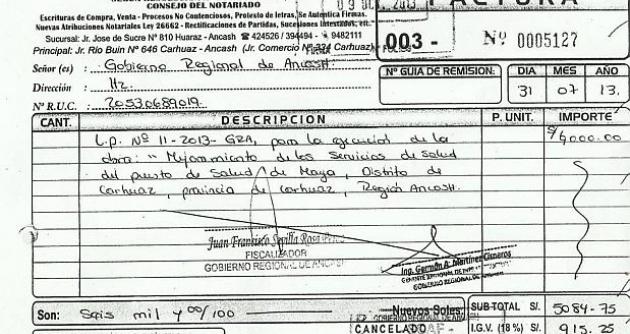 CONSEJO DEL NOTARIADO
Escrituras de Compra, Venta - Procesos No Contenciosos, Protesto de letras, Se Autentica Firmas.
Nuevas Atribuciones Notariales Ley 26662 - Rectificaciones de Partidas, Sucesiones Intestadas, etc.
Sucursal: Jr. Jose de Sucre Nº 810 Huaraz - Ancash ☎ 424526 / 394494 - 9482111
Principal: Jr. Río Buin Nº 646 Carhuaz - Ancash (Jr. Comercio Nº 324 Carhuaz)
FACTURA
003 - Nº 0005127
Señor (es) : Gobierno Regional de Ancash
Dirección : Hz.
Nº R.U.C. : 20530689019
Nº GUIA DE REMISION:
DIA MES AÑO
31 07 13.
CANT. DESCRIPCION P. UNIT. IMPORTE
L.P. Nº 11-2013-GRA, para la ejecucion de la
obra: " Mejoramiento de los Servicios de Salud
del puesto de Salud de Maya, Distrito de
Carhuaz, provincia de Carhuaz, Región Ancash.
S/6000.00
Juan Francisco Sevilla Rosa
FISCALIZADOR
GOBIERNO REGIONAL DE ANCASH
Ing. Germán A. Martinez Cisneros
GOBIERNO REGIONAL DE ANCASH
Son: Seis mil y 00/100 Nuevos Soles
CANCELADO
SUB-TOTAL S/. 5084-75
I.G.V. (18 %) S/. 915.25